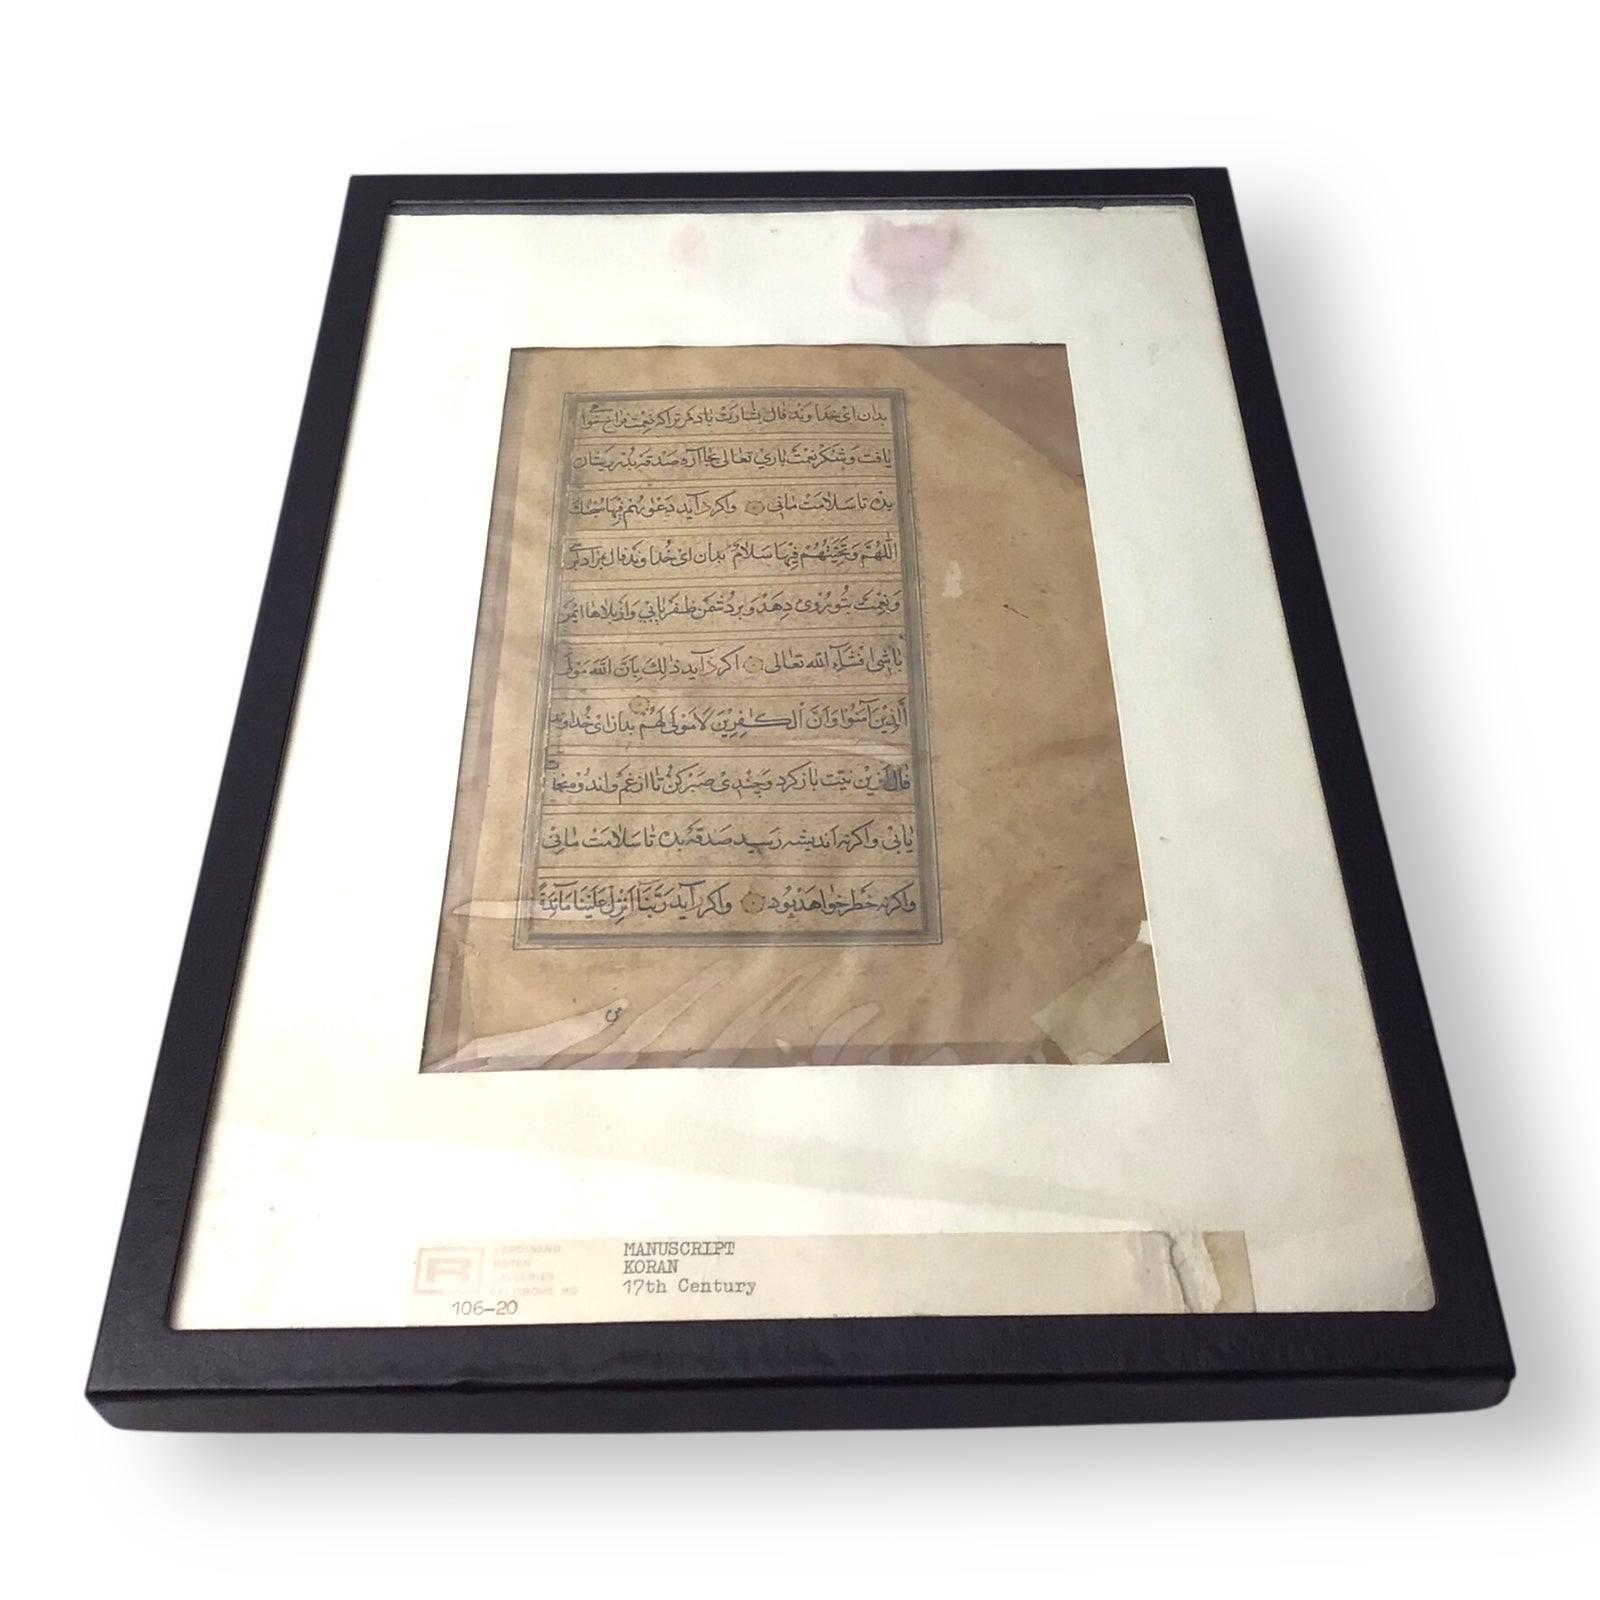 بدان ای خداوند فال بشارت باد مر ترا که نعمت فراخ خواهی
یافت و شکر نعمت باری تعالی بجا آر و صدقه بدرویشان
بده تا سلامت مانی واکر د آید دعوىهم فیها سبحنك
اللهم وتحیتهم فیها سلام بدان ای خداوند فال مراد
ونعمت بتو روی دهد و بر دشمن ظفر یابی و از بلاها ایمن
باشی انشآء الله تعالی اکر ذ آید ذلك بان الله مولی
الذین آمنوا وان الكفرین لا مولی لهم بدان ای خداوند
فال ازین نیت باز کرد و چندی صبر کن تا از غم و اندوه نجات
یابی واکرنه اندیشه رسید صدقه بده تا سلامت مانی
واکرنه خطر خواهد بود واکر ر آید ربنا انزل علینا مآئدة
R
FERDINAND
ROTEN
GALLERIES
BALTIMORE MD
106-20
MANUSCRIPT
KORAN
17th Century